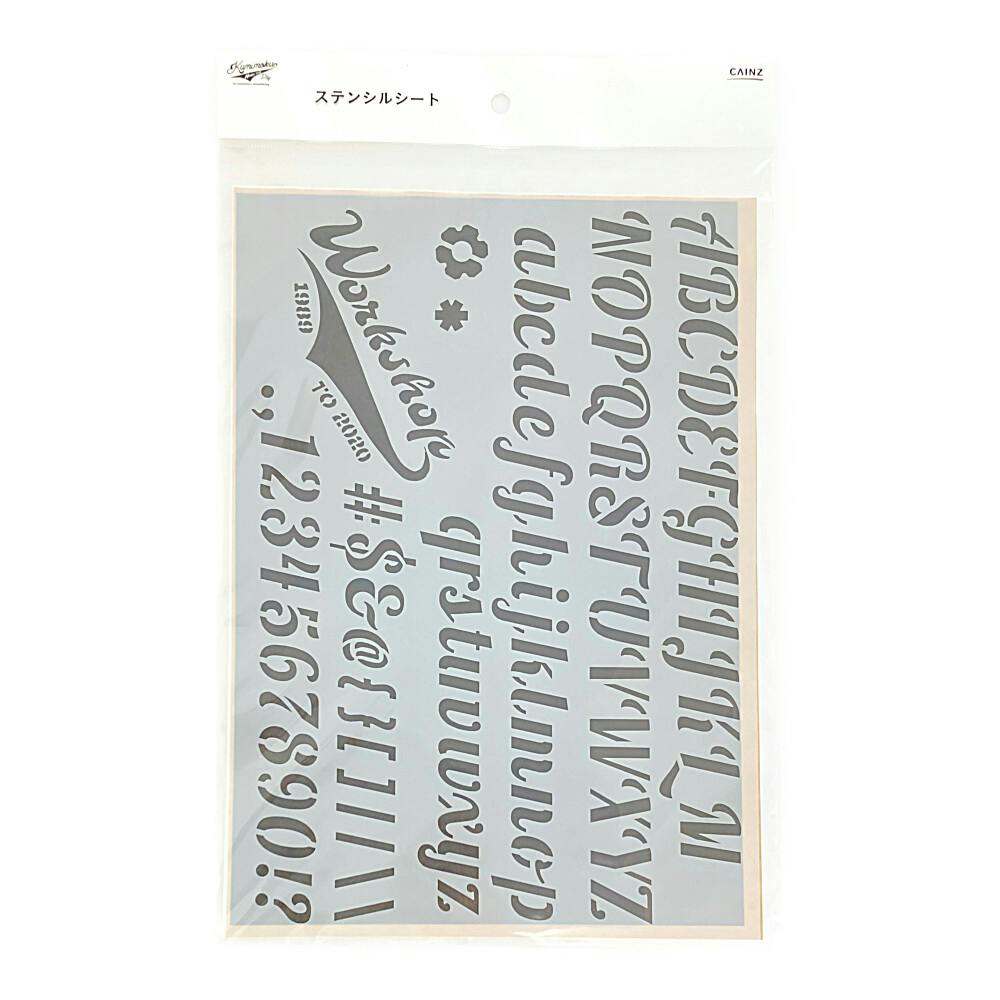 Kumimoku
DIY
CAINZ
ステンシルシート
ABCDEFGHIJKLM
NOPQRSTUVWXYZ
abcdefghijklmnop
qrstuvwxyz
Workshop
1989
TO 2020
#$£@{}[]//\\
.,1234567890!?